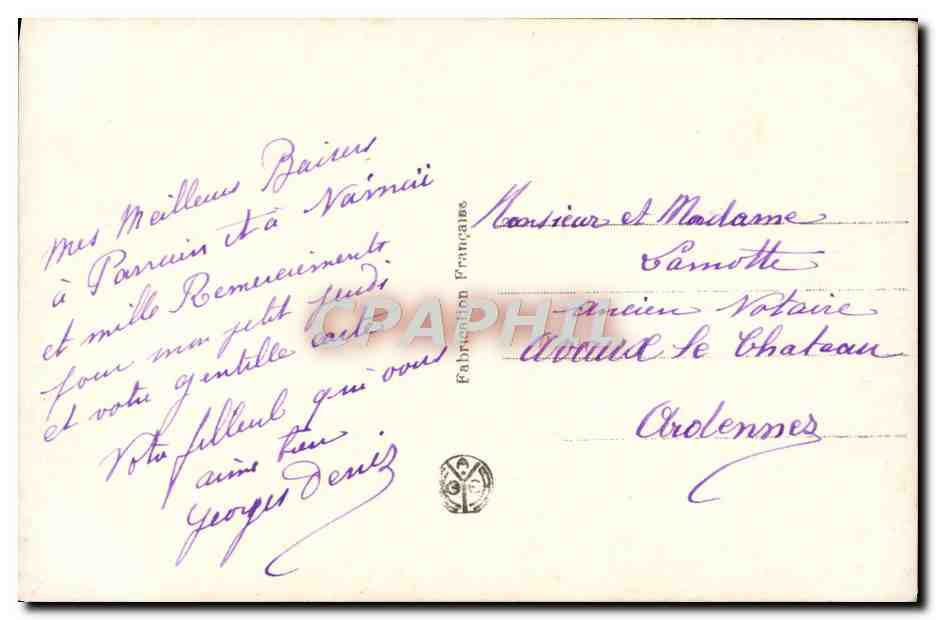 Mes Meilleurs Baisers
à Parrain et à Nainaii
et mille Remerciements
pour mon petit jeudi
et votre gentille carte
Votre filleul qui vous
aime bien.
Georges Denis
Fabrication Française
CRAPHIL
Monsieur et Madame
Lamotte
ancien Notaire
Avaux le Chateau
Ardennes